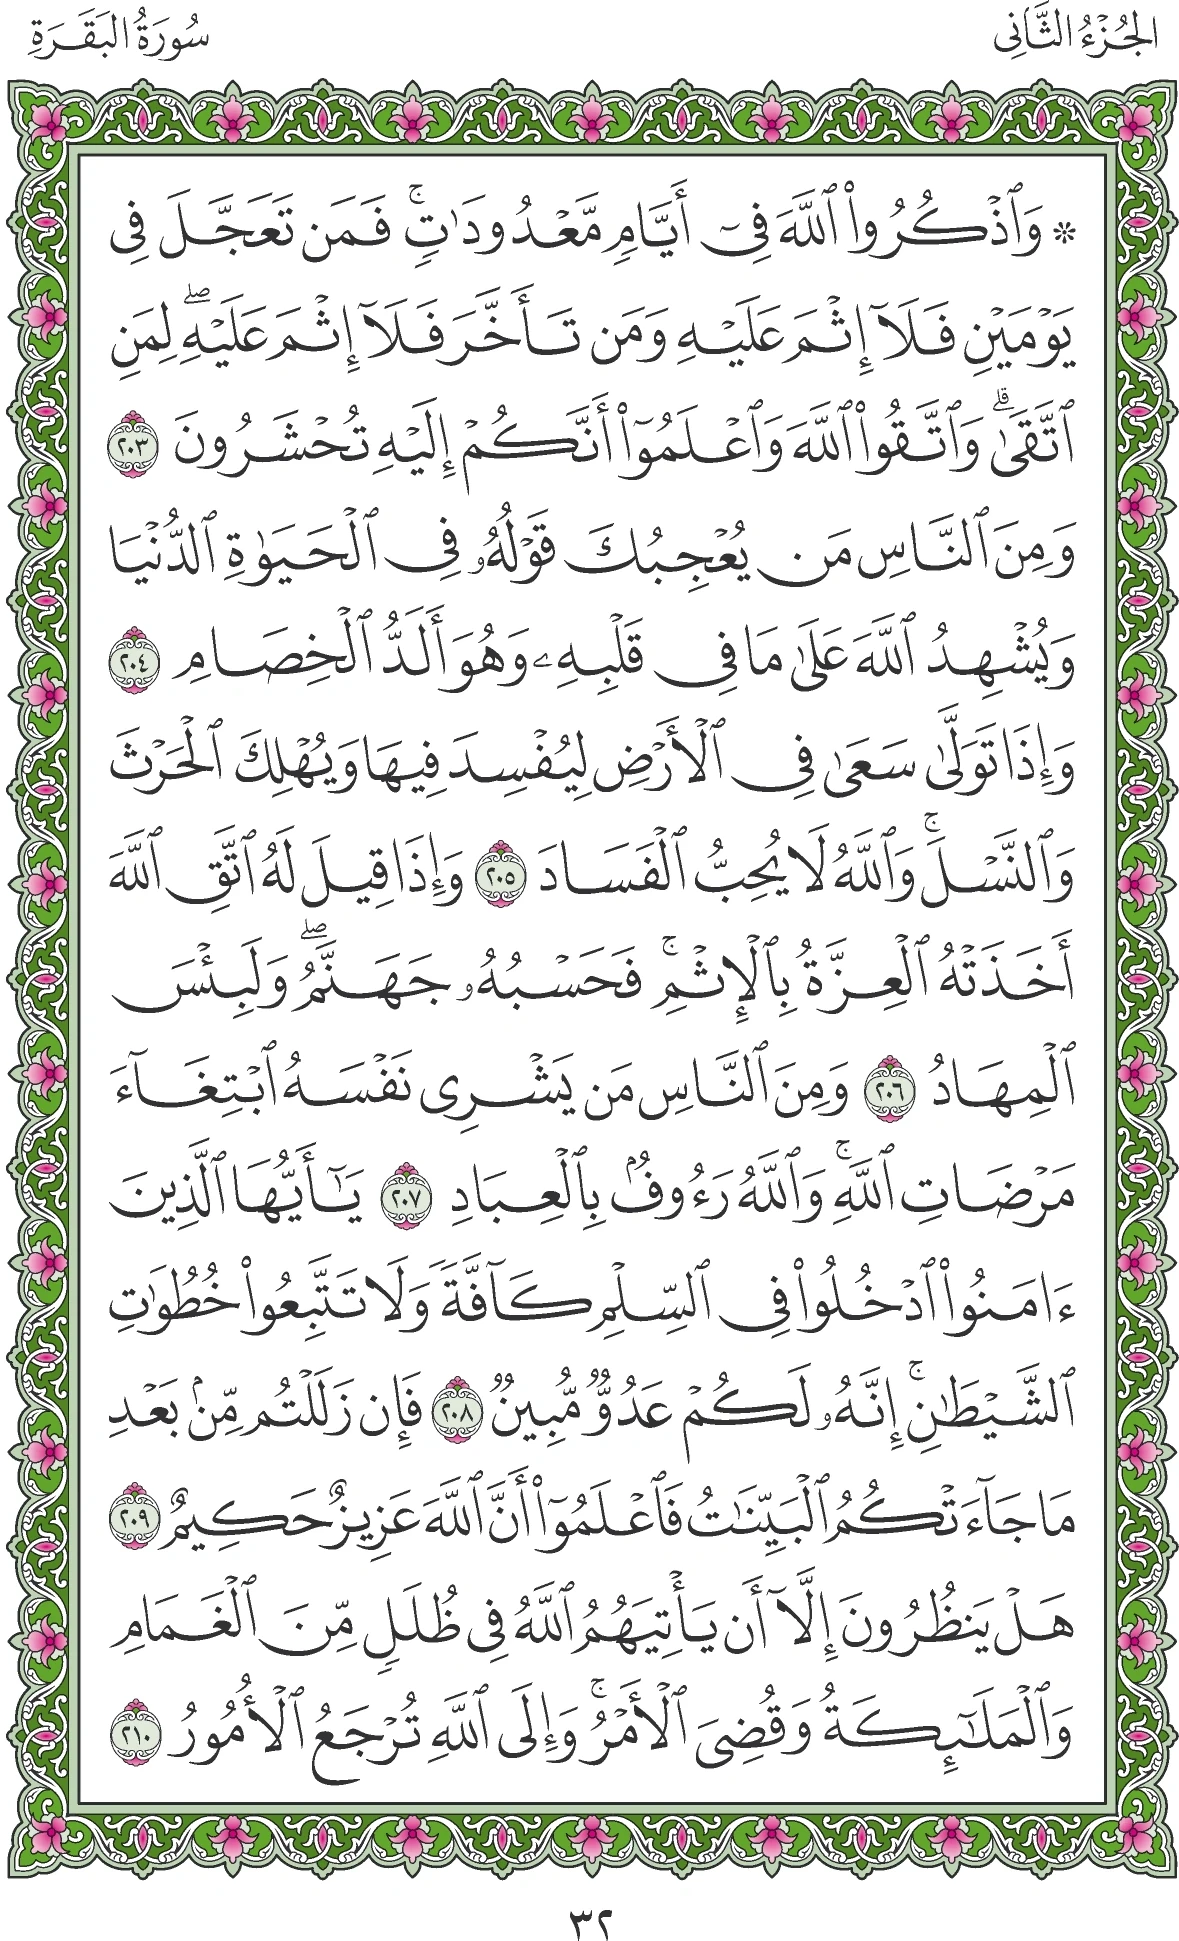 الجُزْءُ الثَّانِي
سُورَةُ البَقَرَةِ
۞ وَٱذۡكُرُواْ ٱللَّهَ فِيٓ أَيَّامٖ مَّعۡدُودَٰتٖۚ فَمَن تَعَجَّلَ فِي
يَوۡمَيۡنِ فَلَآ إِثۡمَ عَلَيۡهِ وَمَن تَأَخَّرَ فَلَآ إِثۡمَ عَلَيۡهِۖ لِمَنِ
ٱتَّقَىٰۗ وَٱتَّقُواْ ٱللَّهَ وَٱعۡلَمُوٓاْ أَنَّكُمۡ إِلَيۡهِ تُحۡشَرُونَ ٢٠٣
وَمِنَ ٱلنَّاسِ مَن يُعۡجِبُكَ قَوۡلُهُۥ فِي ٱلۡحَيَوٰةِ ٱلدُّنۡيَا
وَيُشۡهِدُ ٱللَّهَ عَلَىٰ مَا فِي قَلۡبِهِۦ وَهُوَ أَلَدُّ ٱلۡخِصَامِ ٢٠٤
وَإِذَا تَوَلَّىٰ سَعَىٰ فِي ٱلۡأَرۡضِ لِيُفۡسِدَ فِيهَا وَيُهۡلِكَ ٱلۡحَرۡثَ
وَٱلنَّسۡلَۚ وَٱللَّهُ لَا يُحِبُّ ٱلۡفَسَادَ ٢٠٥ وَإِذَا قِيلَ لَهُ ٱتَّقِ ٱللَّهَ
أَخَذَتۡهُ ٱلۡعِزَّةُ بِٱلۡإِثۡمِۚ فَحَسۡبُهُۥ جَهَنَّمُۖ وَلَبِئۡسَ
ٱلۡمِهَادُ ٢٠٦ وَمِنَ ٱلنَّاسِ مَن يَشۡرِي نَفۡسَهُ ٱبۡتِغَآءَ
مَرۡضَاتِ ٱللَّهِۚ وَٱللَّهُ رَءُوفُۢ بِٱلۡعِبَادِ ٢٠٧ يَٰٓأَيُّهَا ٱلَّذِينَ
ءَامَنُواْ ٱدۡخُلُواْ فِي ٱلسِّلۡمِ كَآفَّةٗ وَلَا تَتَّبِعُواْ خُطُوَٰتِ
ٱلشَّيۡطَٰنِۚ إِنَّهُۥ لَكُمۡ عَدُوّٞ مُّبِينٞ ٢٠٨ فَإِن زَلَلۡتُم مِّنۢ بَعۡدِ
مَا جَآءَتۡكُمُ ٱلۡبَيِّنَٰتُ فَٱعۡلَمُوٓاْ أَنَّ ٱللَّهَ عَزِيزٌ حَكِيمٌ ٢٠٩
هَلۡ يَنظُرُونَ إِلَّآ أَن يَأۡتِيَهُمُ ٱللَّهُ فِي ظُلَلٖ مِّنَ ٱلۡغَمَامِ
وَٱلۡمَلَٰٓئِكَةُ وَقُضِيَ ٱلۡأَمۡرُۚ وَإِلَى ٱللَّهِ تُرۡجَعُ ٱلۡأُمُورُ ٢١٠
٣٢